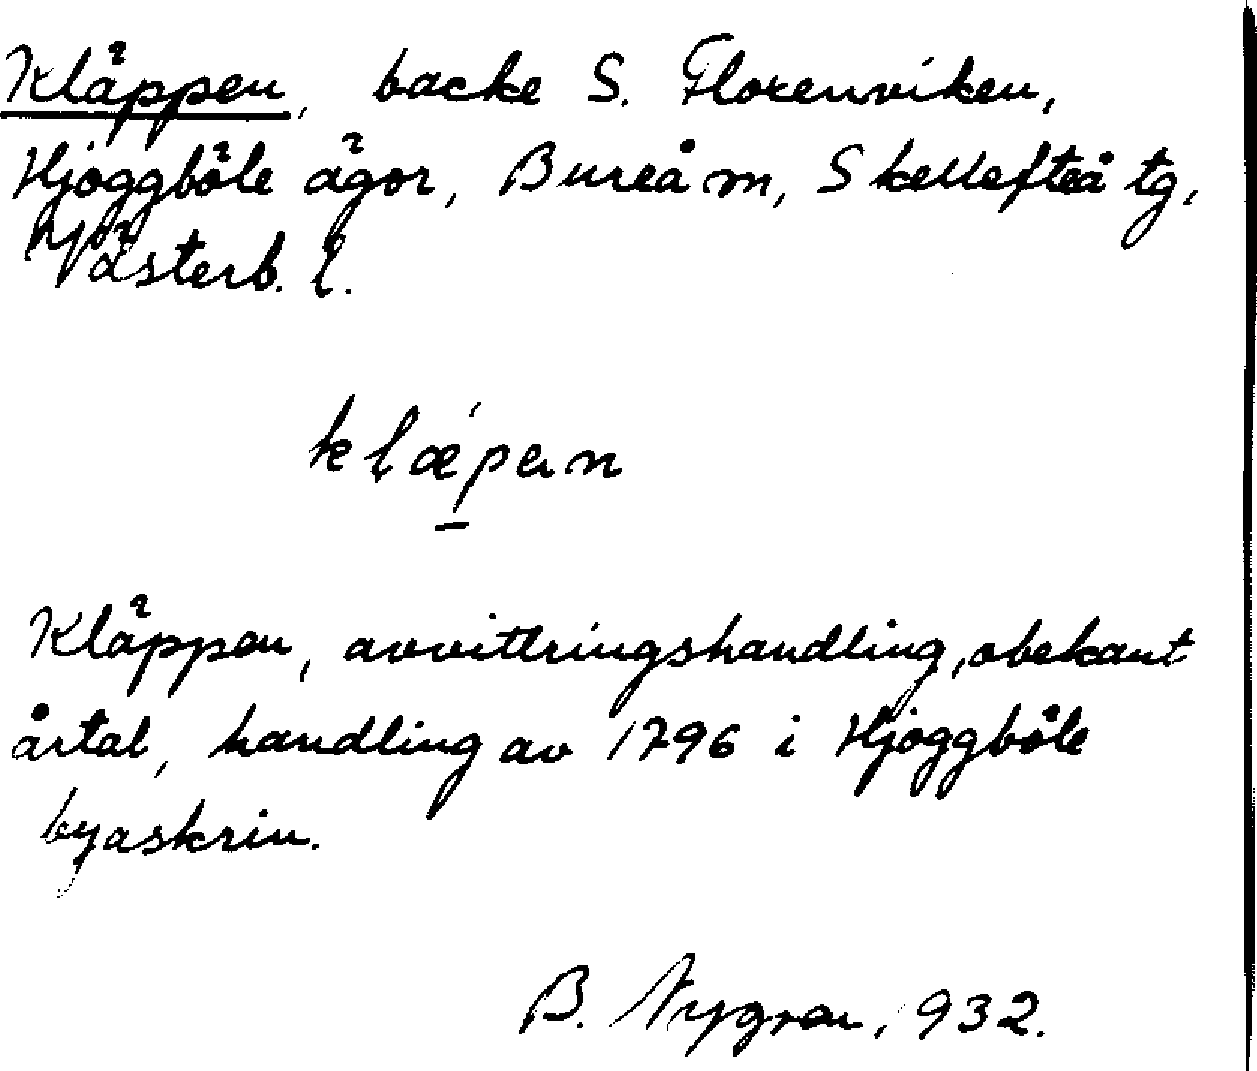 Kläppen, backe S. Florenviken,
Hjoggböle ägor, Bureå m, Skellefteå tg,
Västerb. l.
klæ´pan
Kläppen, avvittringshandling, obekant
årtal, handling av 1796 i Hjoggböle
byaskrin.
B. Nygren, 932.